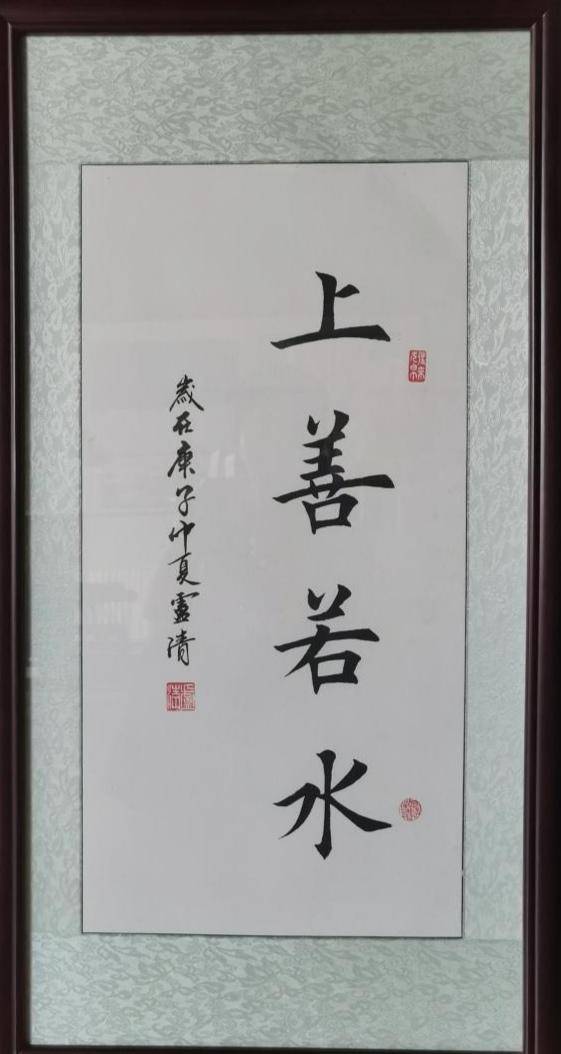 上善若水
歲在庚子仲夏靈清